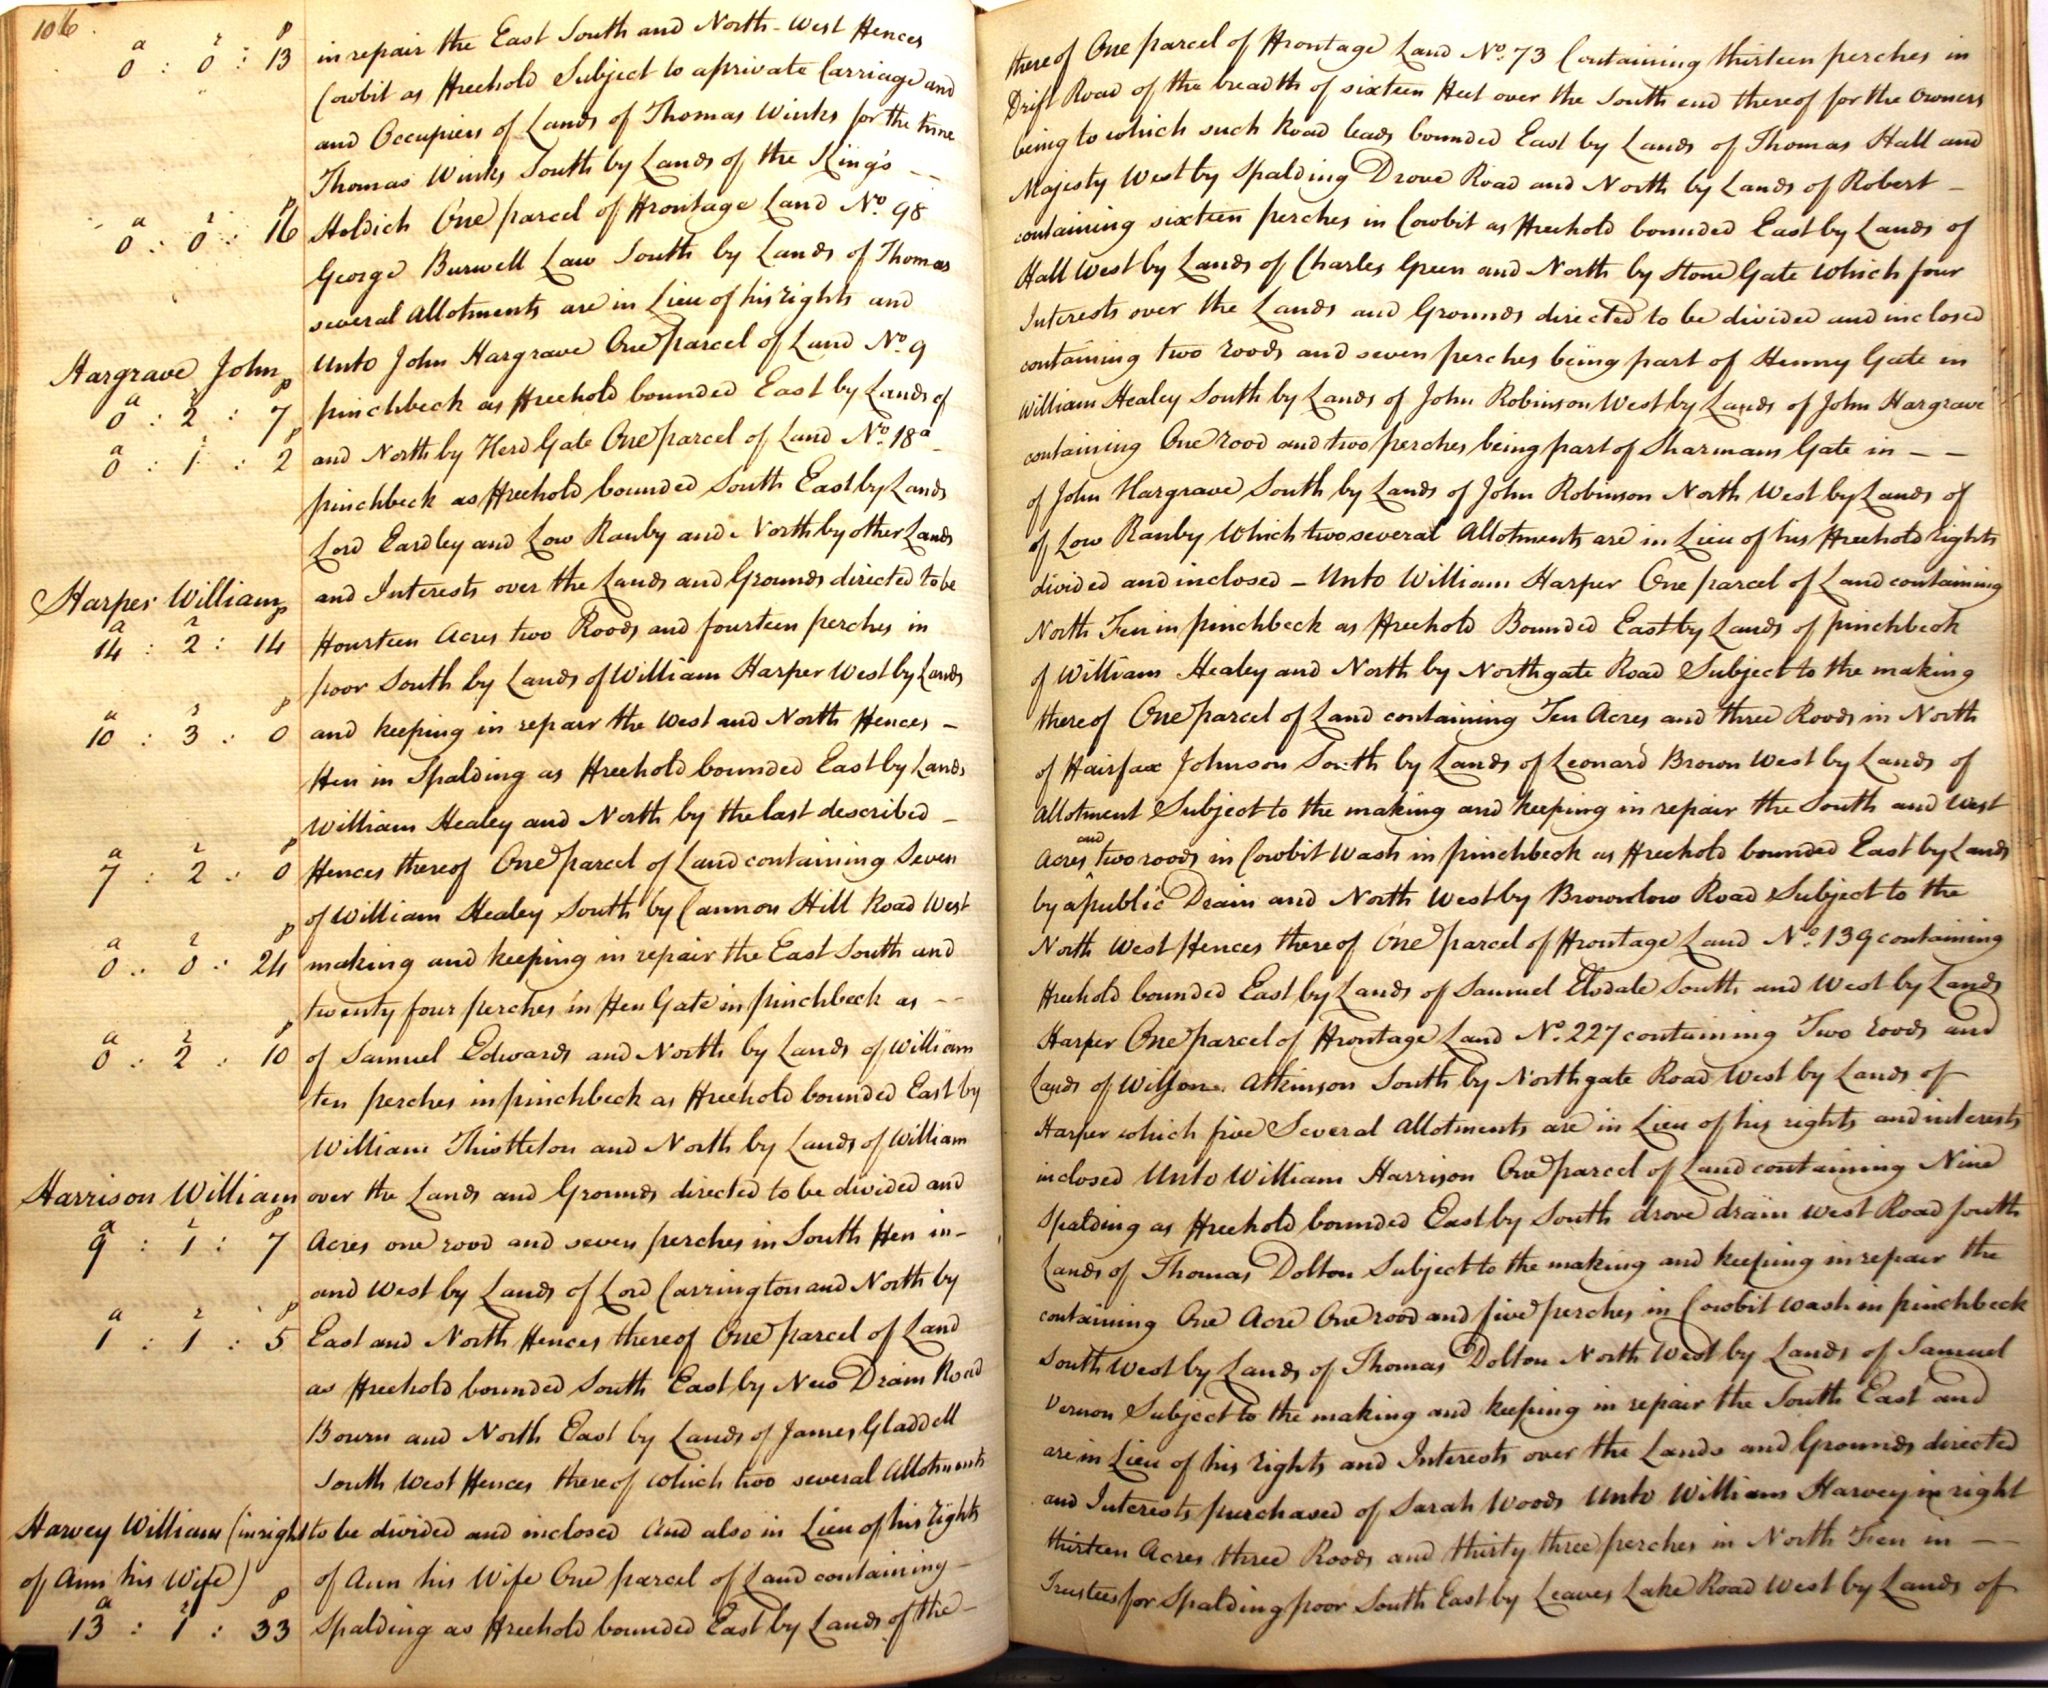 106
a r p
0 : 0 : 13
in repair the East South and North-West Fences thereof One parcel of Frontage Land No. 73 Containing thirteen perches in
Cowbit as Freehold Subject to a private Carriage and Drift Road of the breadth of sixteen Feet over the South end thereof for the Owners
and Occupiers of Lands of Thomas Winks for the time being to which such Road leads bounded East by Lands of Thomas Hall and
Thomas Winks South by Lands of the King's -- Majesty West by Spalding Drove Road and North by Lands of Robert -
a r p
0 : 0 : 16
Holdich One parcel of Frontage Land No. 98 containing sixteen perches in Cowbit as Freehold bounded East by Lands of
George Burwell Law South by Lands of Thomas Hall West by Lands of Charles Green and North by Stone Gate Which four
several Allotments are in Lieu of his rights and Interests over the Lands and Grounds directed to be divided and inclosed
Hargrave John
Unto John Hargrave One parcel of Land No. 9 containing two roods and seven perches being part of Henny Gate in
a r p
0 : 2 : 7
pinchbeck as Freehold bounded East by Lands of William Healey South by Lands of John Robinson West by Lands of John Hargrave
a r p
0 : 1 : 2
and North by Herd Gate One parcel of Land No. 18a - containing One rood and two perches being part of Sharmans Gate in - -
pinchbeck as Freehold bounded South East by Lands of John Hargrave South by Lands of John Robinson North West by Lands of
Lord Eardley and Low Ranby and North by other Lands of Low Ranby Which two several Allotments are in Lieu of his Freehold rights
and Interests over the Lands and Grounds directed to be divided and inclosed - Unto William Harper One parcel of Land containing
Harper William
a r p
14 : 2 : 14
Fourteen Acres two Roods and fourteen perches in North Fen in pinchbeck as Freehold Bounded East by Lands of pinchbeck
poor South by Lands of William Harper West by Lands of William Healey and North by Northgate Road Subject to the making
a r p
10 : 3 : 0
and keeping in repair the West and North Fences - thereof One parcel of Land containing Ten Acres and three Roods in North
Fen in Spalding as Freehold bounded East by Lands of Fairfax Johnson South by Lands of Leonard Brown West by Lands of
William Healey and North by the last described - Allotment Subject to the making and keeping in repair the South and West
a r p
7 : 2 : 0
Fences thereof One parcel of Land containing Seven Acres and two roods in Cowbit Wash in pinchbeck as Freehold bounded East by Lands
of William Healey South by Cannon Hill Road West by a public Drain and North West by Brownlow Road Subject to the
a r p
0 : 0 : 24
making and keeping in repair the East South and North West Fences thereof One parcel of Frontage Land No. 139 containing
twenty four perches in Fen Gate in pinchbeck as -- Freehold bounded East by Lands of Samuel Elsdale South and West by Lands
a r p
0 : 2 : 10
of Samuel Edwards and North by Lands of William Harper One parcel of Frontage Land No. 227 containing Two roods and
ten perches in pinchbeck as Freehold bounded East by Lands of Wilson Atkinson South by Northgate Road West by Lands of
William Thistleton and North by Lands of William Harper which five Several Allotments are in Lieu of his rights and interests
Harrison William
over the Lands and Grounds directed to be divided and inclosed Unto William Harrison One parcel of Land containing Nine
a r p
9 : 1 : 7
Acres one rood and seven perches in South Fen in - Spalding as Freehold bounded East by South drove drain west Road South
and West by Lands of Lord Carrington and North by Lands of Thomas Dolton Subject to the making and keeping in repair the
a r p
1 : 1 : 5
East and North Fences thereof One parcel of Land containing One Acre One rood and five perches in Cowbit Wash in pinchbeck
as Freehold bounded South East by New Drain Road South West by Lands of Thomas Dolton North West by Lands of Samuel
Bourn and North East by Lands of James Gladdell Vernon Subject to the making and keeping in repair the South East and
South West Fences thereof which two several Allotments are in Lieu of his rights and Interests over the Lands and Grounds directed
Harvey William (in right
to be divided and inclosed And also in Lieu of his rights and Interests purchased of Sarah Woods Unto William Harvey in right
of Ann his Wife)
of Ann his Wife One parcel of Land containing - thirteen Acres three Roods and thirty three perches in North Fen in --
a r p
13 : 1 : 33
Spalding as Freehold bounded East by Lands of the - Trustees for Spalding poor South East by Leaves Lake Road West by Lands of